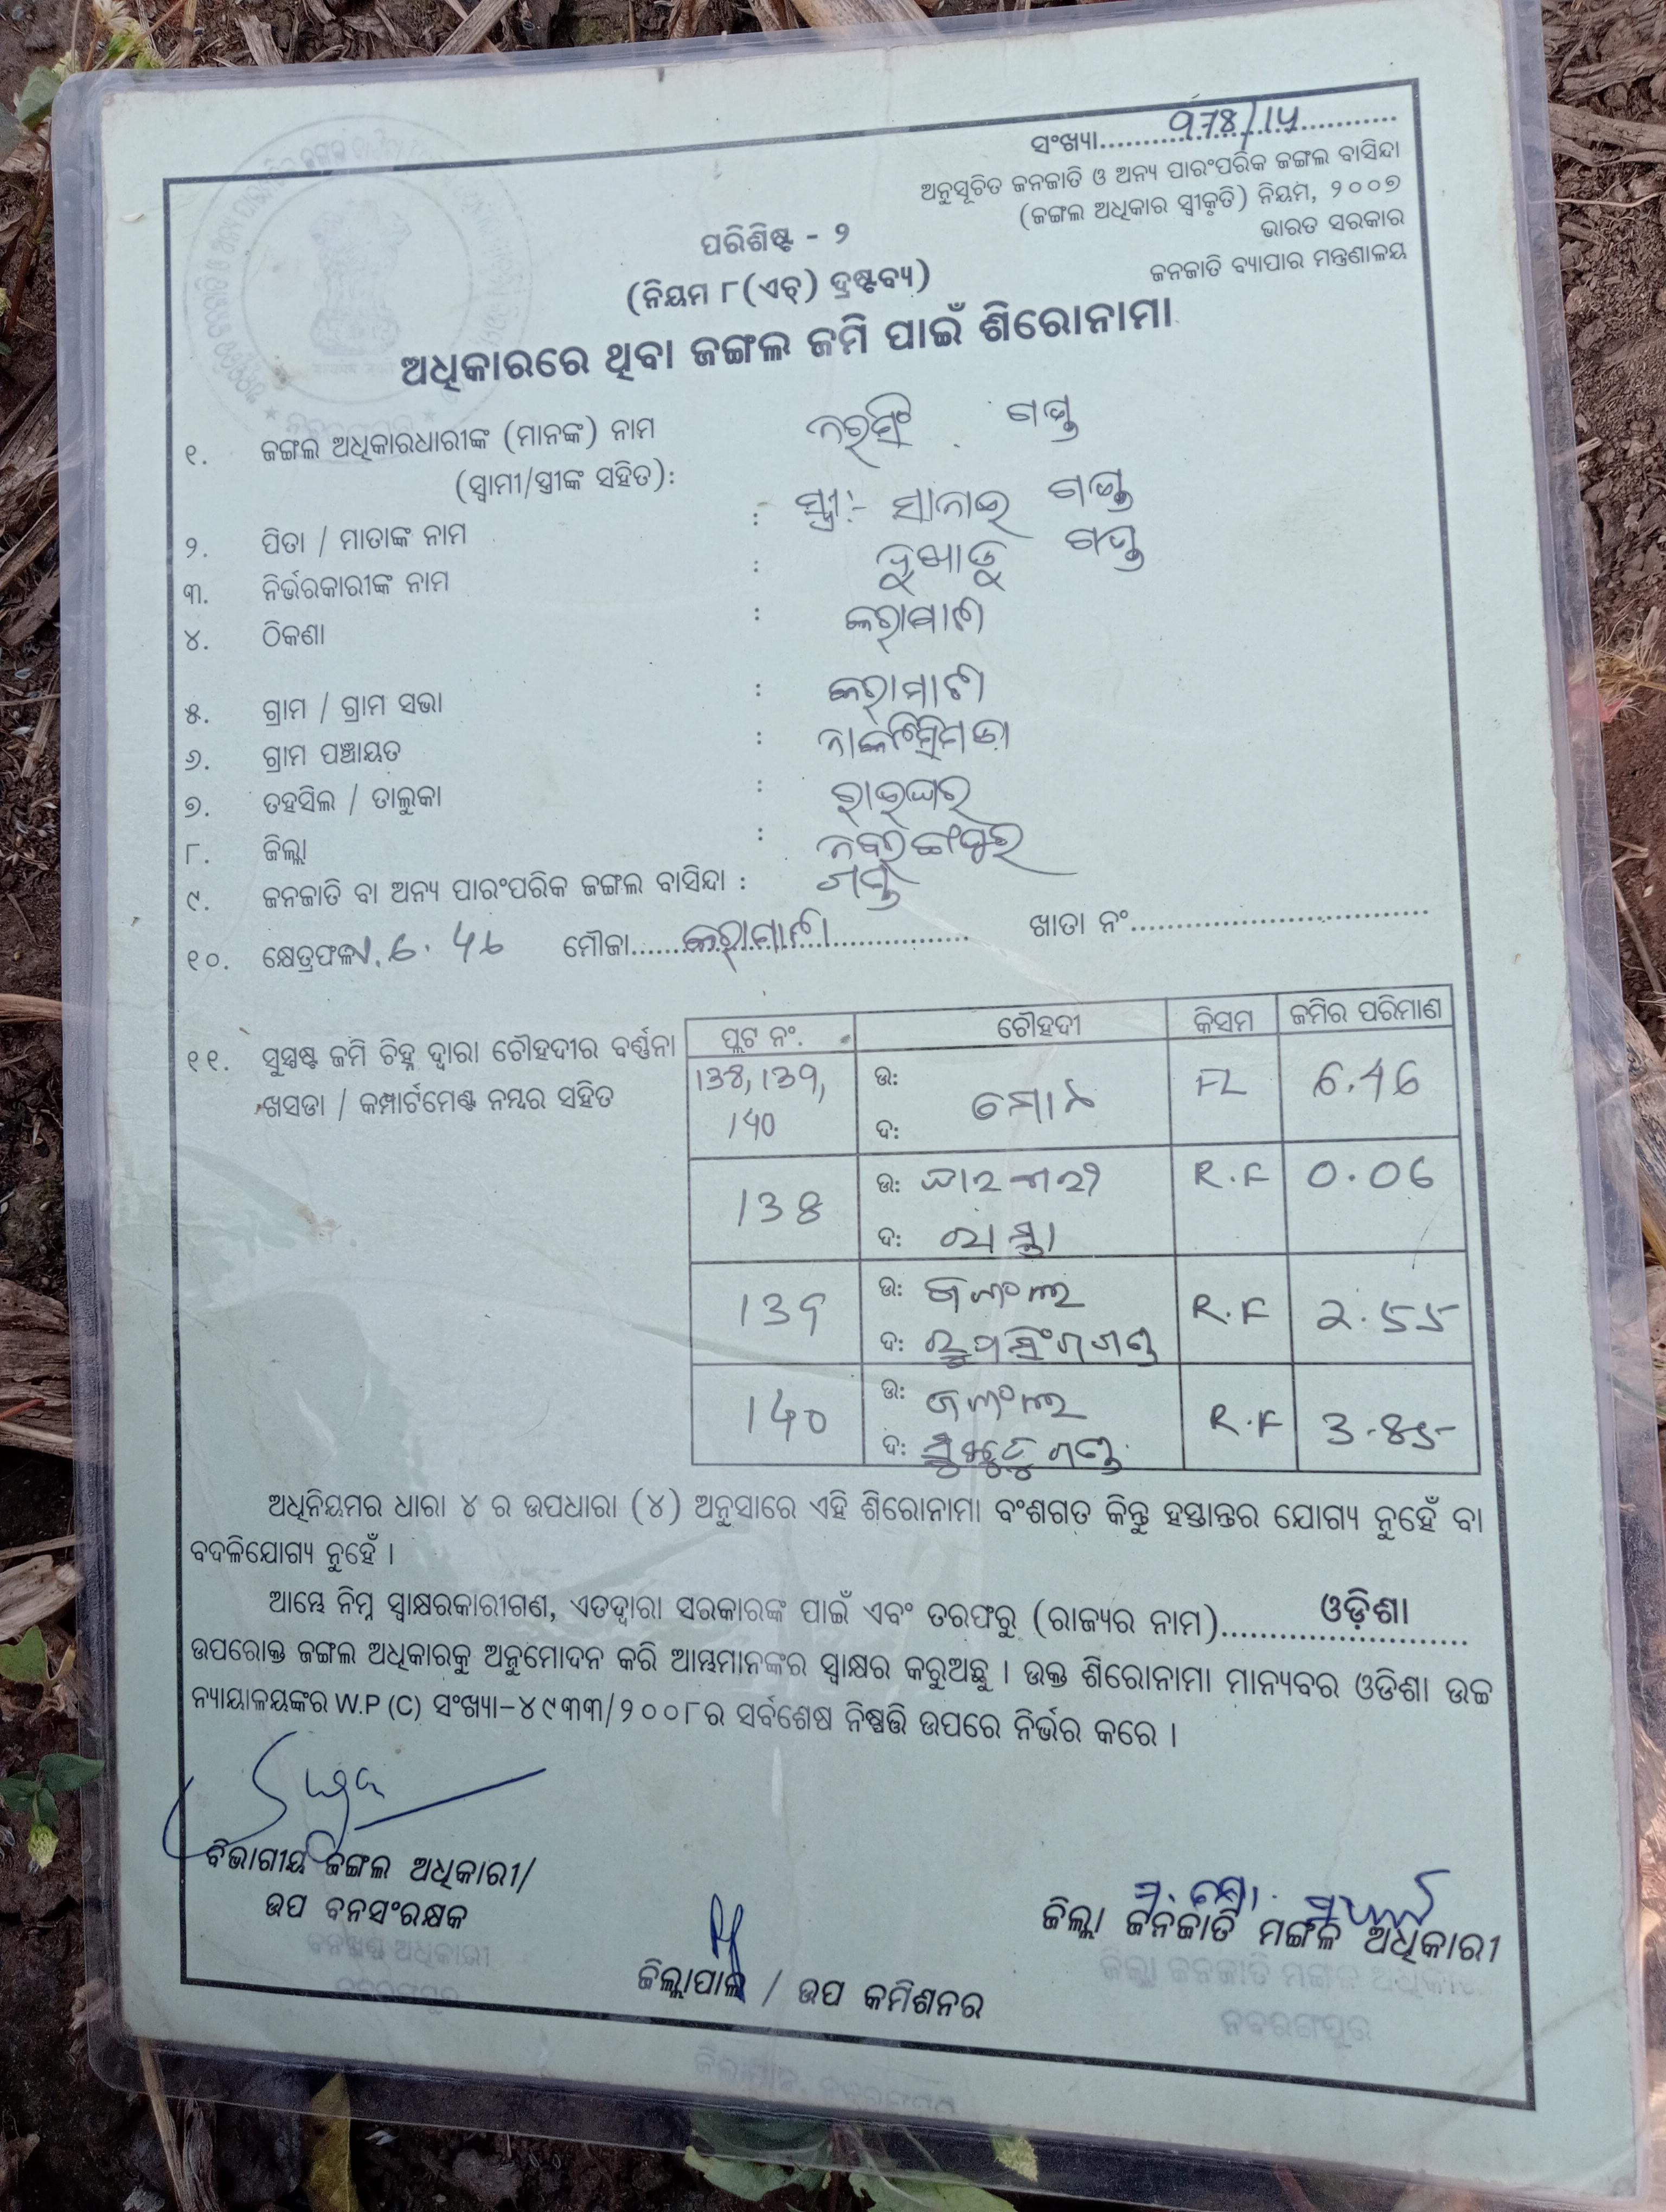 ସଂଖ୍ୟା 978/14
ଅନୁସୂଚିତ ଜନଜାତି ଓ ଅନ୍ୟ ପାରଂପରିକ ଜଙ୍ଗଲ ବାସିନ୍ଦା
(ଜଙ୍ଗଲ ଅଧିକାର ସ୍ୱୀକୃତି) ନିୟମ, ୨୦୦୭
ଭାରତ ସରକାର
ଜନଜାତି ବ୍ୟାପାର ମନ୍ତ୍ରଣାଳୟ
ପରିଶିଷ୍ଟ - ୨
(ନିୟମ ୮(ଏଚ୍) ଦ୍ରଷ୍ଟବ୍ୟ)
ଅଧିକାରରେ ଥିବା ଜଙ୍ଗଲ ଜମି ପାଇଁ ଶିରୋନାମା
୧. ଜଙ୍ଗଲ ଅଧିକାରଧାରୀଙ୍କ (ମାନଙ୍କ) ନାମ ନରସିଂ ଗଣ୍ଡ
(ସ୍ୱାମୀ/ସ୍ତ୍ରୀଙ୍କ ସହିତ): ସ୍ତ୍ରୀ:- ସାନାଇ ଗଣ୍ଡ
୨. ପିତା / ମାତାଙ୍କ ନାମ : ଗଣ୍ଡ
୩. ନିର୍ଭରକାରୀଙ୍କ ନାମ :
୪. ଠିକଣା : କରାମାଟୀ
୫. ଗ୍ରାମ / ଗ୍ରାମ ସଭା : କରାମାଟୀ
୬. ଗ୍ରାମ ପଞ୍ଚାୟତ :
୭. ତହସିଲ / ତାଲୁକା : ରାଇଘର
୮. ଜିଲ୍ଲା : ନବରଙ୍ଗପୁର
୯. ଜନଜାତି ବା ଅନ୍ୟ ପାରଂପରିକ ଜଙ୍ଗଲ ବାସିନ୍ଦା : ଗଣ୍ଡ
୧୦. କ୍ଷେତ୍ରଫଳ 6.46 ମୌଜା କରାମାଟୀ ଖାତା ନଂ
୧୧. ସୁସ୍ପଷ୍ଟ ଜମି ଚିହ୍ନ ଦ୍ୱାରା ଚୌହଦୀର ବର୍ଣ୍ଣନା
ଖସଡା / କମ୍ପାର୍ଟମେଣ୍ଟ ନମ୍ବର ସହିତ
ପ୍ଲଟ ନଂ. ଚୌହଦୀ କିସମ ଜମିର ପରିମାଣ
138, 139, 140 ଉ: ଦ: ମୋଟ FL 6.46
138 ଉ: ଦ: ରାସ୍ତା R.F 0.06
139 ଉ: ଜଙ୍ଗଲ ଦ: ରୂପସିଂଗ ଗଣ୍ଡ R.F 2.55
140 ଉ: ଜଙ୍ଗଲ ଦ: ଗଣ୍ଡ R.F 3.85
ଅଧିନିୟମର ଧାରା ୪ ର ଉପଧାରା (୪) ଅନୁସାରେ ଏହି ଶିରୋନାମା ବଂଶଗତ କିନ୍ତୁ ହସ୍ତାନ୍ତର ଯୋଗ୍ୟ ନୁହେଁ ବା
ବଦଳିଯୋଗ୍ୟ ନୁହେଁ ।
ଆମ୍ଭେ ନିମ୍ନ ସ୍ୱାକ୍ଷରକାରୀଗଣ, ଏତଦ୍ୱାରା ସରକାରଙ୍କ ପାଇଁ ଏବଂ ତରଫରୁ (ରାଜ୍ୟର ନାମ) ଓଡ଼ିଶା
ଉପରୋକ୍ତ ଜଙ୍ଗଲ ଅଧିକାରକୁ ଅନୁମୋଦନ କରି ଆମ୍ଭମାନଙ୍କର ସ୍ୱାକ୍ଷର କରୁଅଛୁ । ଉକ୍ତ ଶିରୋନାମା ମାନ୍ୟବର ଓଡିଶା ଉଚ୍ଚ
ନ୍ୟାୟାଳୟଙ୍କର W.P (C) ସଂଖ୍ୟା-୪୯୩୩/୨୦୦୮ର ସର୍ବଶେଷ ନିଷ୍ପତ୍ତି ଉପରେ ନିର୍ଭର କରେ ।
ବିଭାଗୀୟ ଜଙ୍ଗଲ ଅଧିକାରୀ/
ଉପ ବନସଂରକ୍ଷକ
ବନଖଣ୍ଡ ଅଧିକାରୀ
ଜିଲ୍ଲାପାଳ / ଉପ କମିଶନର
ଜିଲ୍ଲା ଜନଜାତି ମଙ୍ଗଳ ଅଧିକାରୀ
ଜିଲ୍ଲା ଜନଜାତି ମଙ୍ଗଳ ଅଧିକାରୀ
ନବରଙ୍ଗପୁର